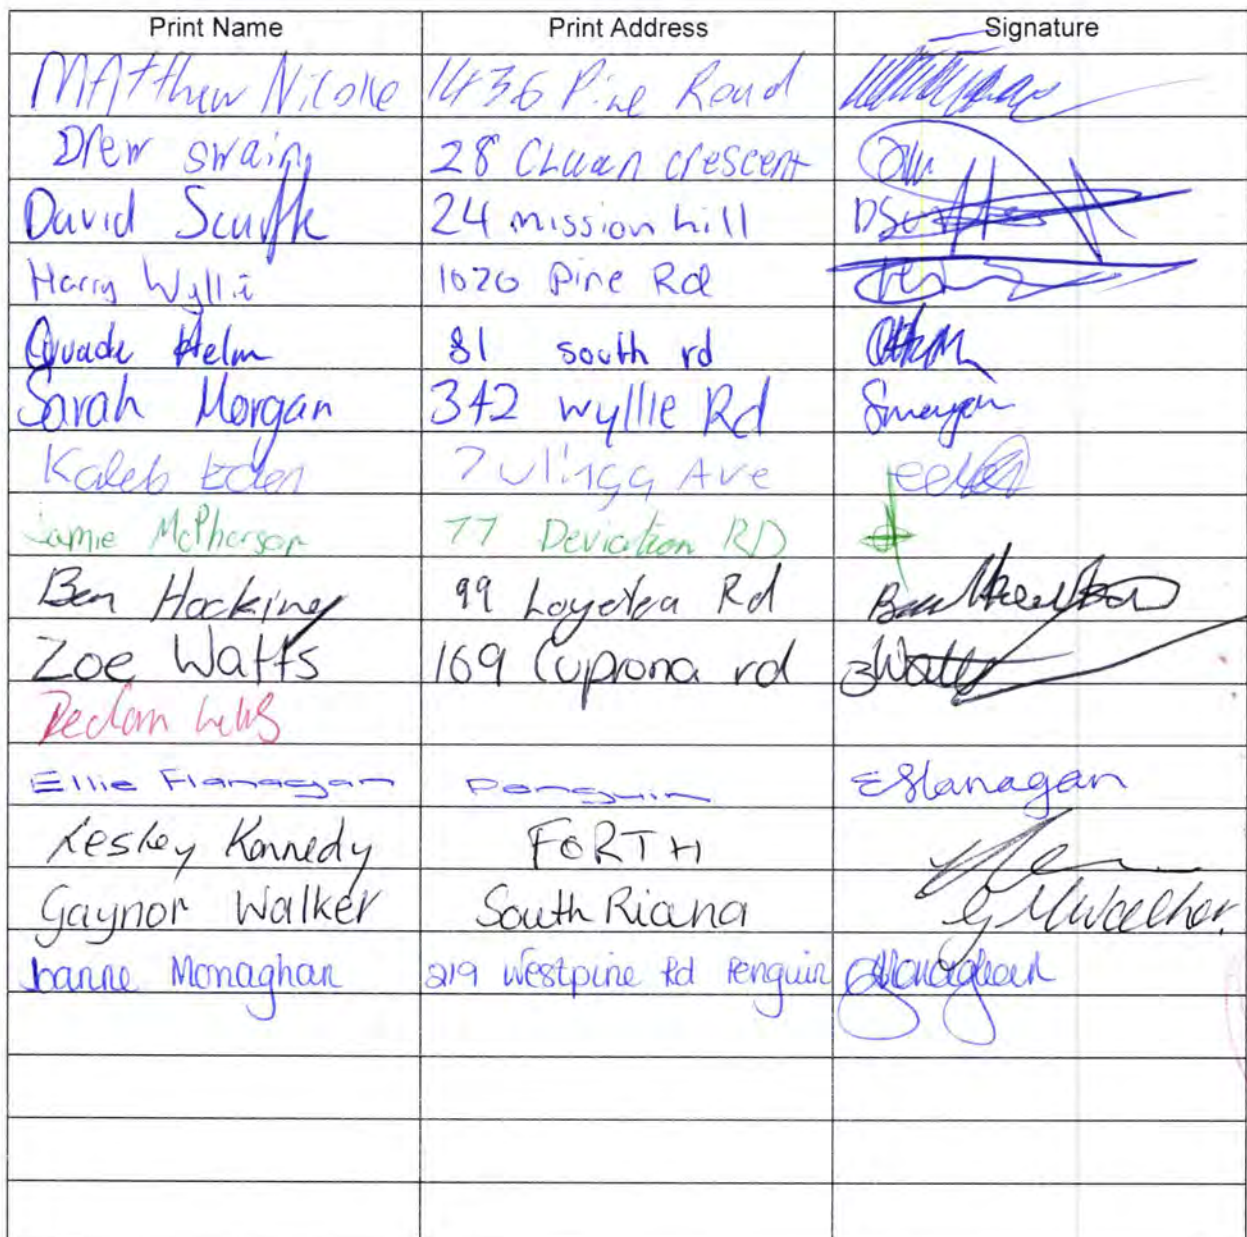 Print Name Print Address Signature
Matthew Nicolle 1436 Pine Road
Drew Swain 28 crescent
David 24 mission hill
Harry Wyllie 1020 Pine Rd
Quade Helm 81 south rd
Sarah Morgan 342 Wyllie Rd Smorgan
Kaleb Eden 7 Ave
Jamie McPherson 77 Deviation RD
Ben Hocking 99 Loyetea Rd
Zoe Watts 169 Cuprona rd ZWatts
Declan
Ellie Flanagan Penguin EFlanagan
Lesley Kennedy FORTH
Gaynor Walker South Riana G MWalker.
Joanne Monaghan 219 Westpine Rd Penguin JMonaghan